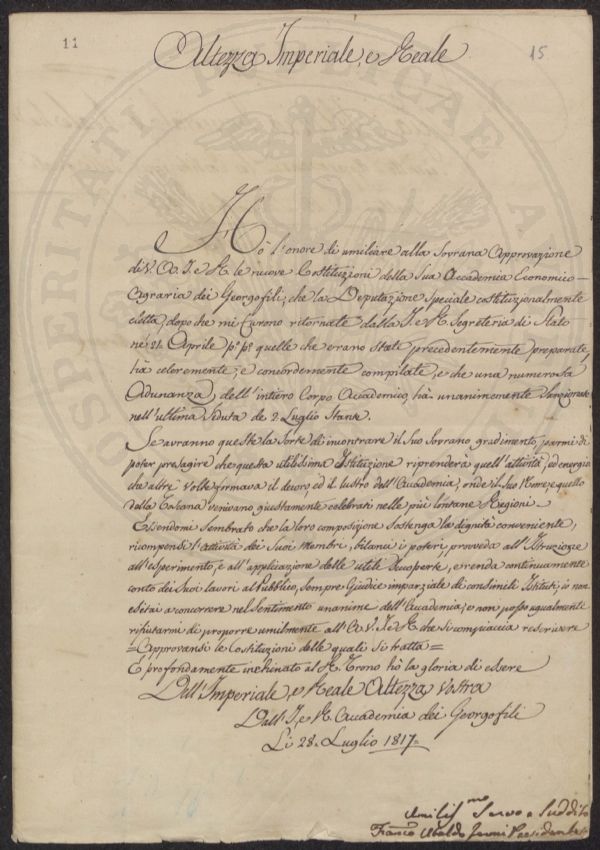 11
15
Altezza Imperiale, e Reale
Hò l'onore di umiliare alla Sovrana Approvazione
di V. A. I. e R. le nuove Costituzioni della Sua Accademia Economico-
Agraria dei Georgofili, che la Deputazione speciale costituzionalmente
eletta, dopo che mi furono ritornate dalla I. e R. Segreteria di Stato
ne' 21. Aprile p.º p.º quelle che erano state precedentemente preparate,
hà celeremente, e concordemente compilate, e che una numerosa
Adunanza, dell'intiero Corpo Accademico, hà unanimemente Sanzionate
nell'ultima Seduta de' 2. Luglio Stante.
Se avranno queste la Sorte di incontrare il Suo Sovrano gradimento, parmi di
poter presagire che questa utilissima Istituzione riprenderà quell'attività, ed energia
che altre volte firmava il decoro, ed il lustro dell'Accademia, onde il Suo Nome, e quello
della Toscana venivano giustamente celebrati nelle più lontane Regioni.-
Essendomi Sembrato che la loro composizione Sostenga la dignità conveniente,
ricompensi l'attività dei Suoi Membri, bilanci i poteri, provveda all'Istruzione
all'esperimento, e all'applicazione delle utili Scoperte, e renda continuamente
conto dei Suoi lavori al Pubblico, Sempre Giudice imparziale di consimili Istituti; io non
esitai a concorrere nel Sentimento unanime dell'Accademia; e non posso ugualmente
rifiutarmi di proporre umilmente all'A. V. I. e R. che si compiaccia rescrivere
=Approvansi le Costituzioni delle quali si tratta=
E profondamente inchinato al R. Trono hò la gloria di essere
Dell'Imperiale, e Reale Altezza Vostra
Dall'I. e R. Accademia dei Georgofili
Li 28. Luglio 1817.
Umiliss.mo Servo e Suddito
Franco Ubaldo Presidente
OSPERITATI PUBLICAE A